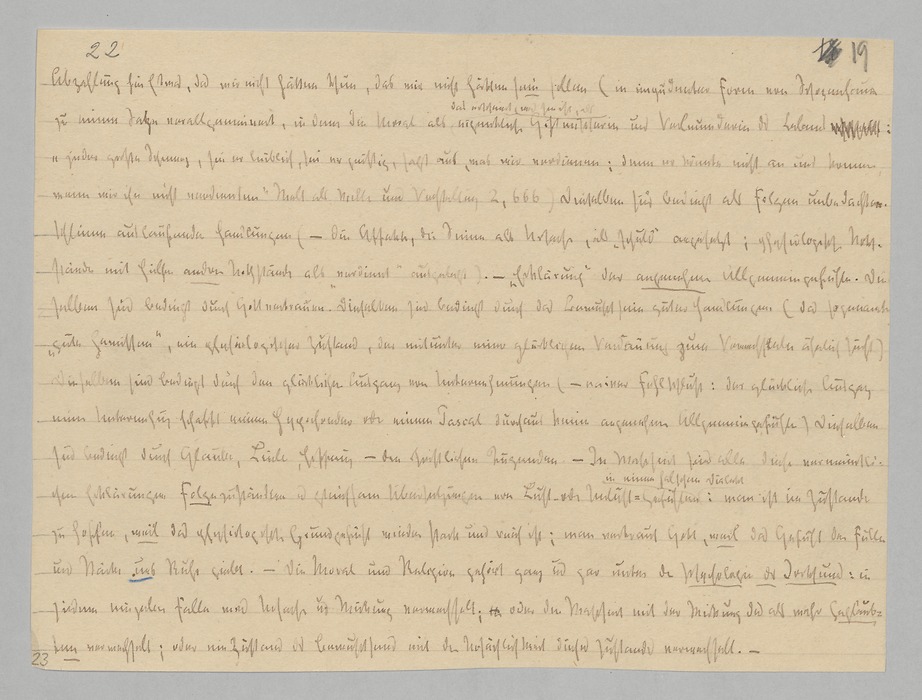 22 19
Abzahlung für Etwas, das wir nicht hätten thun, das wir nicht hätten sein sollen (in impudenter Form von Schopenhauer
das erscheint, was sie ist, als
zu einem Satze verallgemeinert, in dem die Moral als eigentliche Giftmischerin und Verleumderin des Lebens:
„jeder große Schmerz, sei er leiblich, sei er geistig, sagt aus, was wir verdienen; denn er könnte nicht an uns kommen,
wenn wir ihn nicht verdienten“ Welt als Wille und Vorstellung 2, 666) Dieselben sind bedingt als Folgen unbedachter,
schlimm auslaufender Handlungen (— die Affekte, die Sinne als Ursache, als „schuld“ angesetzt; physiologische Noth-
stände mit Hülfe anderer Nothstände als „verdient“ ausgelegt). — „Erklärung“ der angenehmen Allgemeingefühle. Die-
selben sind bedingt durch Gottvertrauen. Dieselben sind bedingt durch das Bewußtsein guter Handlungen (das sogenannte
„gute Gewissen“, ein physiologischer Zustand, der mitunter einer glücklichen Verdauung zum Verwechseln ähnlich sieht)
Dieselben sind bedingt durch den glücklichen Ausgang von Unternehmungen (— naiver Fehlschluß: der glückliche Ausgang
einer Unternehmung schafft einem Hypochonder oder einem Pascal durchaus keine angenehmen Allgemeingefühle) Dieselben
sind bedingt durch Glaube, Liebe, Hoffnung — die christlichen Tugenden. — In Wahrheit sind alle diese vermeintli-
in einen falschen Dialekt
chen Erklärungen Folgezustände und gleichsam Übersetzungen von Lust- oder Unlust-Gefühlen: man ist im Zustande
zu hoffen, weil das physiologische Grundgefühl wieder stark und reich ist; man vertraut Gott, weil das Gefühl der Fülle
und Stärke uns Ruhe giebt. — Die Moral und Religion gehört ganz und gar unter die Psychologie des Irrthums: in
jedem einzelnen Falle wird Ursache und Wirkung verwechselt; oder die Wahrheit mit der Wirkung des als wahr Geglaub-
ten verwechselt; oder ein Zustand des Bewußtseins mit der Ursächlichkeit dieses Zustands verwechselt. —
23